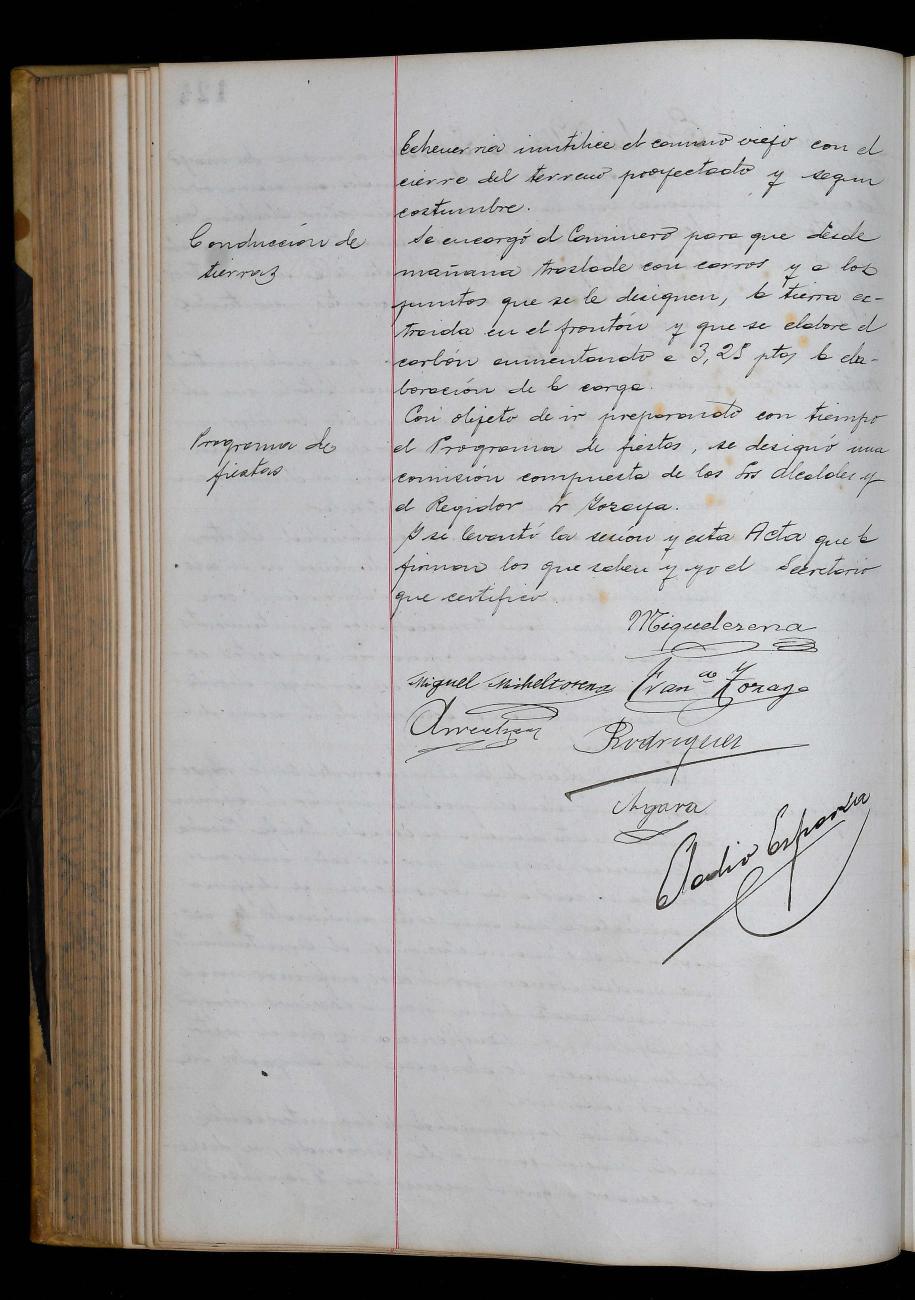 Echeverria inutilice el camino viejo con el
cierre del terreno proyectado y segun
costumbre.
Conducción de
tierras
Se encargó al Caminero para que desde
mañana traslade con carros y a los
puntos que se le designen, la tierra ex-
traida en el frontón y que se elabore el
carbón aumentando a 3,25 ptas la ela-
boración de la carga.
Programa de
fiestas
Con objeto de ir preparando con tiempo
el Programa de fiestas, se designó una
comisión compuesta de los Srs Alcaldes y
el Regidor Sr Zozaya.
Y se levantó la sesión y esta Acta que la
firman los que saben y yo el Secretario
que certifico.
Miquelerena
Miguel Micheltorena Franco Zozaya
Rodriguez
Eladio Esparza